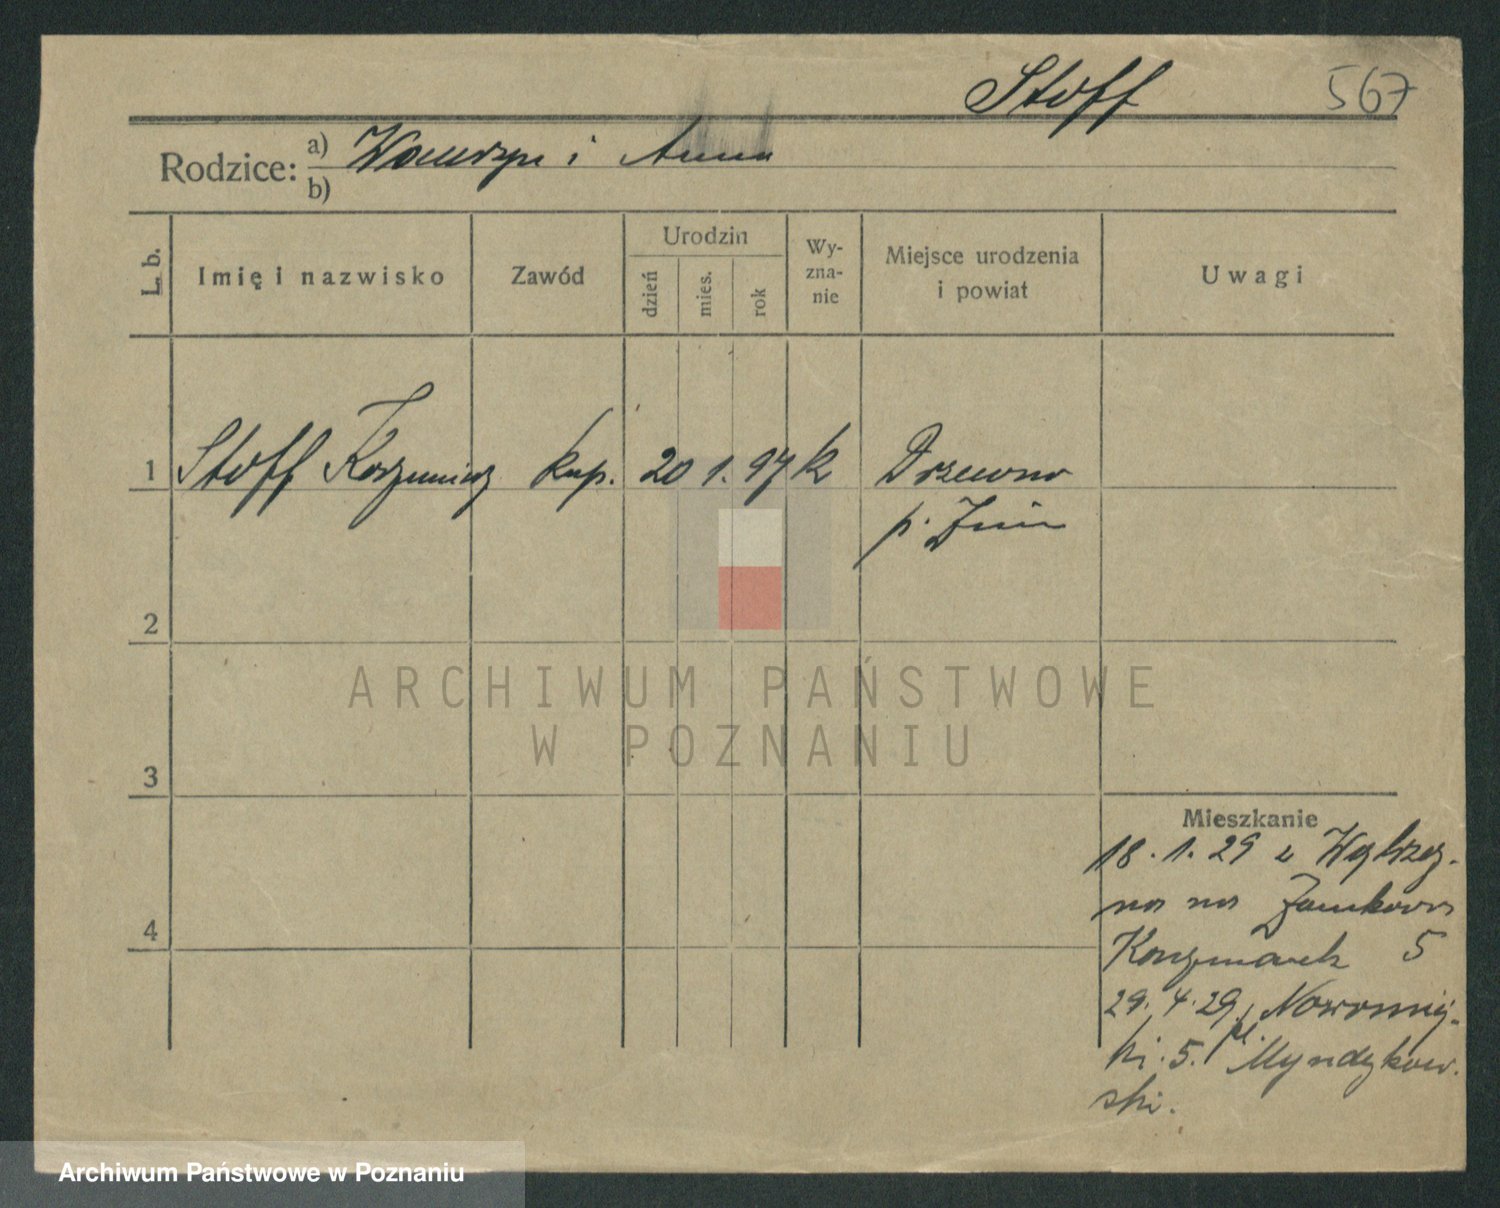 Stoff 567
Rodzice: a) Wawrzyn i Anna
b)
L. b.
Imię i nazwisko
Zawód
Urodzin
dzień
mies.
rok
Wy-
zna-
nie
Miejsce urodzenia
i powiat
Uwagi
1 Stoff Kazimierz kup. 20 1. 97 k Drzewno
p. Żnin
2
3
4
Mieszkanie
18. 1. 29 z Wąbrzeź-
na na Zamkowa
Konzmarek 5
29. 4. 29. Nowomiej-
ki. 5. pl. Myndykow-
ski.
ARCHIWUM PAŃSTWOWE
W POZNANIU
Archiwum Państwowe w Poznaniu